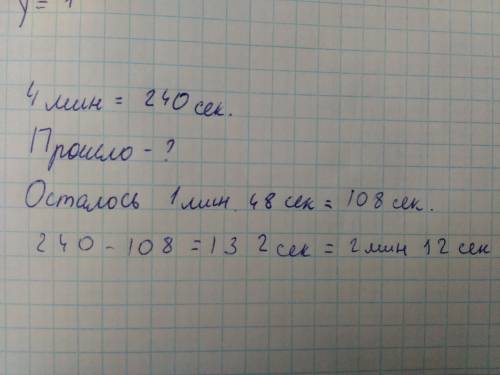 y =
4 мин = 240 сек.
Прошло - ?
Осталось 1 мин. 48 сек = 108 сек.
240 - 108 = 132 сек = 2 мин 12 сек